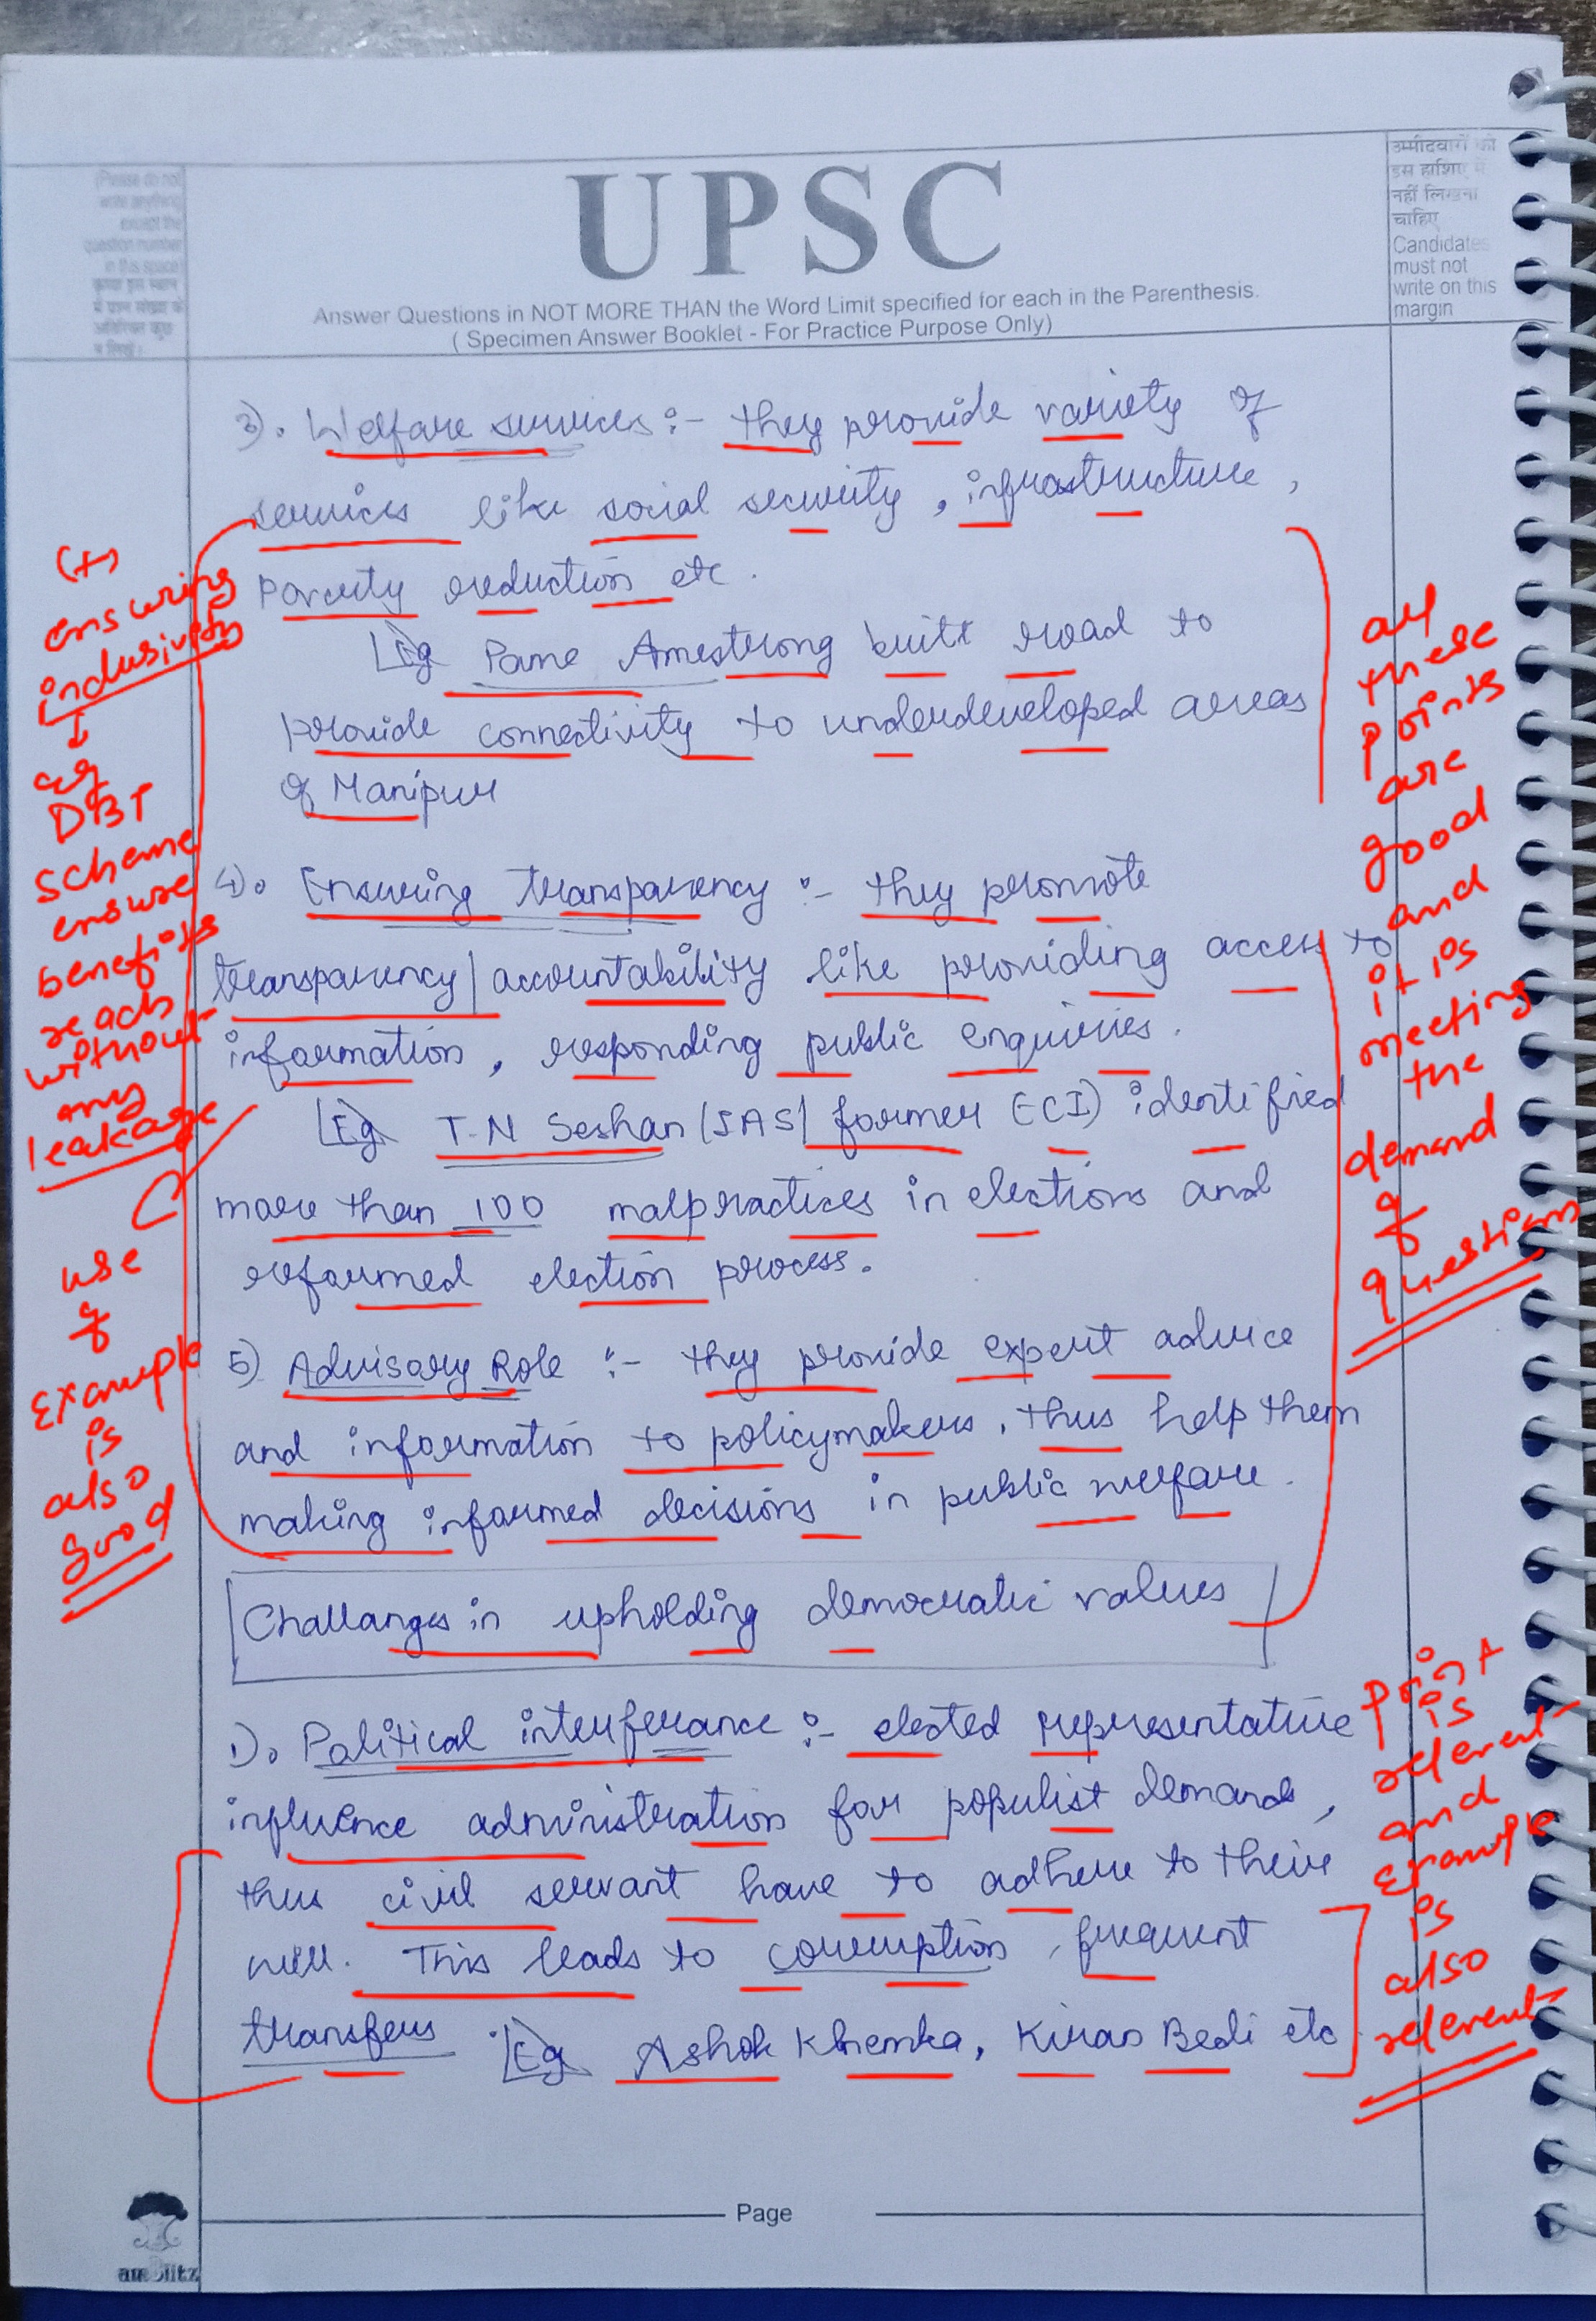 (Please do not
write anything
except the
question number
in this space)
UPSC
Answer Questions in NOT MORE THAN the Word Limit specified for each in the Parenthesis.
( Specimen Answer Booklet - For Practice Purpose Only)
उम्मीदवारों को
इस हाशिए में
नहीं लिखना
चाहिए
Candidates
must not
write on this
margin
3). Welfare services :- they provide variety of
services like social security , infrastructure ,
Poverty reduction etc .
Eg Pame Amestrong built road to
provide connectivity to underdeveloped areas
of Manipur
4). Ensuring transparency :- they promote
transparency/accountability like providing access to
information , responding public enquiries .
Eg T.N Seshan (IAS/ former ECI) identified
more than 100 malpractices in elections and
reformed election process.
5) Advisory Role :- they provide expert advice
and information to policymakers , thus help them
making informed decisions in public welfare .
Challanges in upholding democratic values
1). Political interferance :- elected representative
influence administration for populist demands ,
thus civil servant have to adhere to their
will. This leads to corruption , frequent
transfers . Eg Ashok Khemka, Kiran Bedi etc
(+)
ensuring
inclusivity
↓
eg
DBT
scheme
ensure
benefits
reach
without
any
leakage
use
of
Example
is
also
good
all
these
points
are
good
and
it is
meeting
the
demand
of
question
point
is
relevent
and
example
is
also
relevent
Page